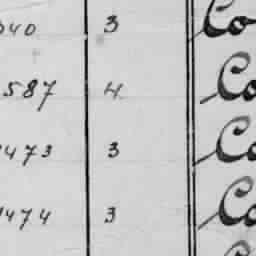 040 3 Co
587 4 Co
473 3 Co
474 3 Co